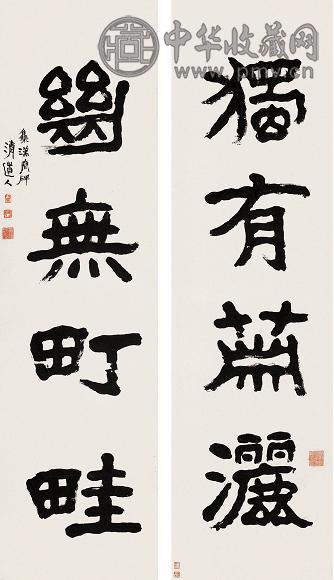 中华收藏网
獨有蕭灑
絕無町畦
集漢碑
清道人